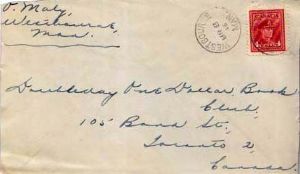 P. Maly,
Westbourne,
Man.
WESTBOURNE
MAN.
CANADA
4 4
Doubleday One Dollar Book
Club,
105 Bond St.,
Toronto 2,
Canada.